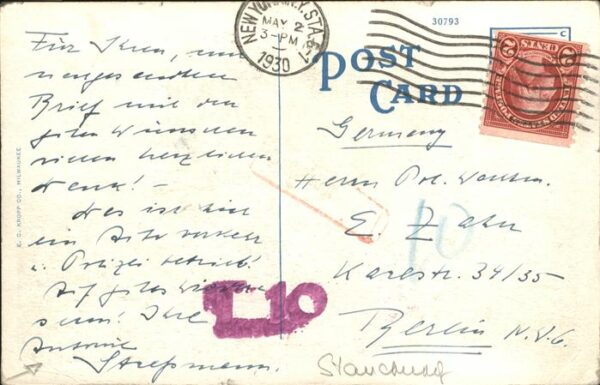 Für Ihren, mir
Brief mit den
guten Wünschen
vielen herzlichen
Dank! –
Das ist hier
ein
u. Polizei betrieb!
Auf gutes Wieder-
sehn! Ihre
Antonie
Straßmann.
NEW YORK, N.Y. STA.
MAY 2
3-PM
1930
30793
POST CARD
2 CENTS 2
Germany
Herrn Pol. Wachtm.
E. Zahn
Karlstr. 34/35
Berlin N.W.6.
10
T 10
E. C. KROPP CO., MILWAUKEE